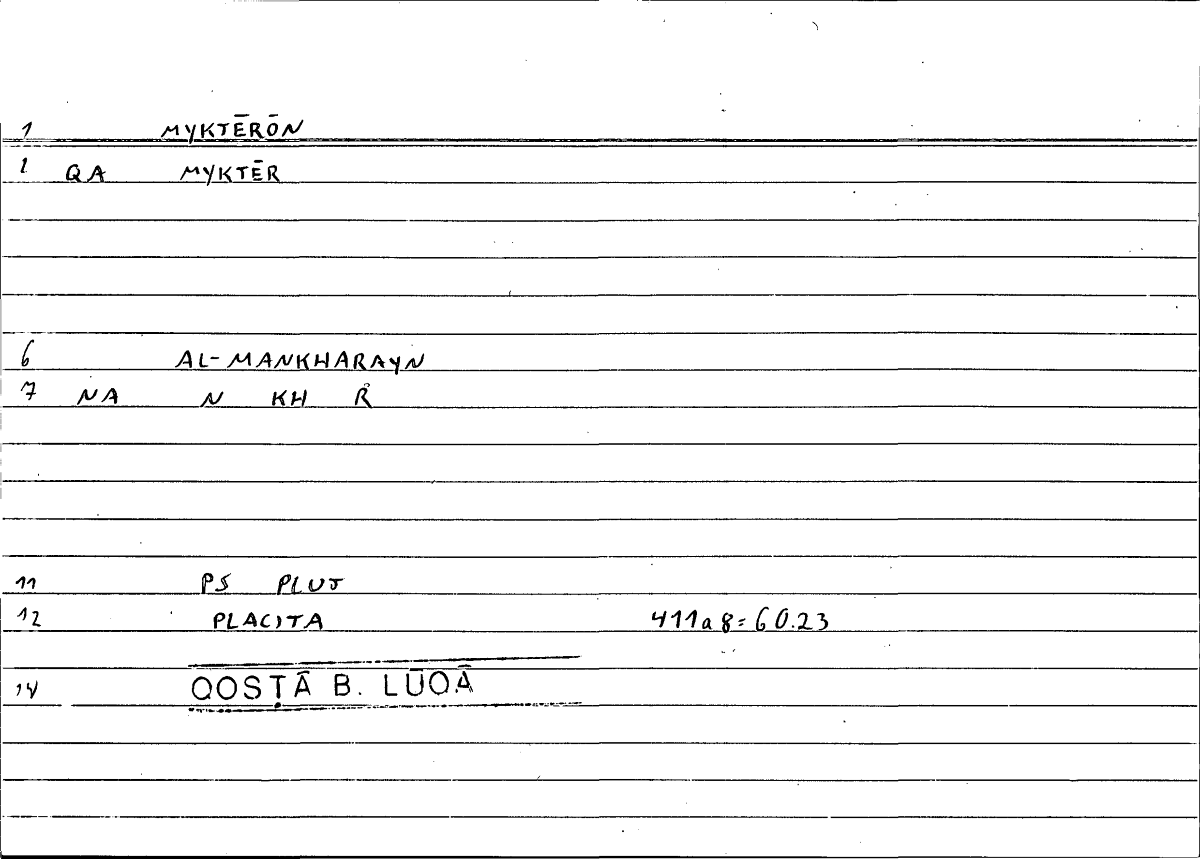 1 MYKTĒRŌN
1 QA MYKTĒR
6 AL-MANKHARAYN
7 NA N KH R
11 PS PLUT
12 PLACITA 411a8=60.23
14 QOSṬĀ B. LŪQĀ